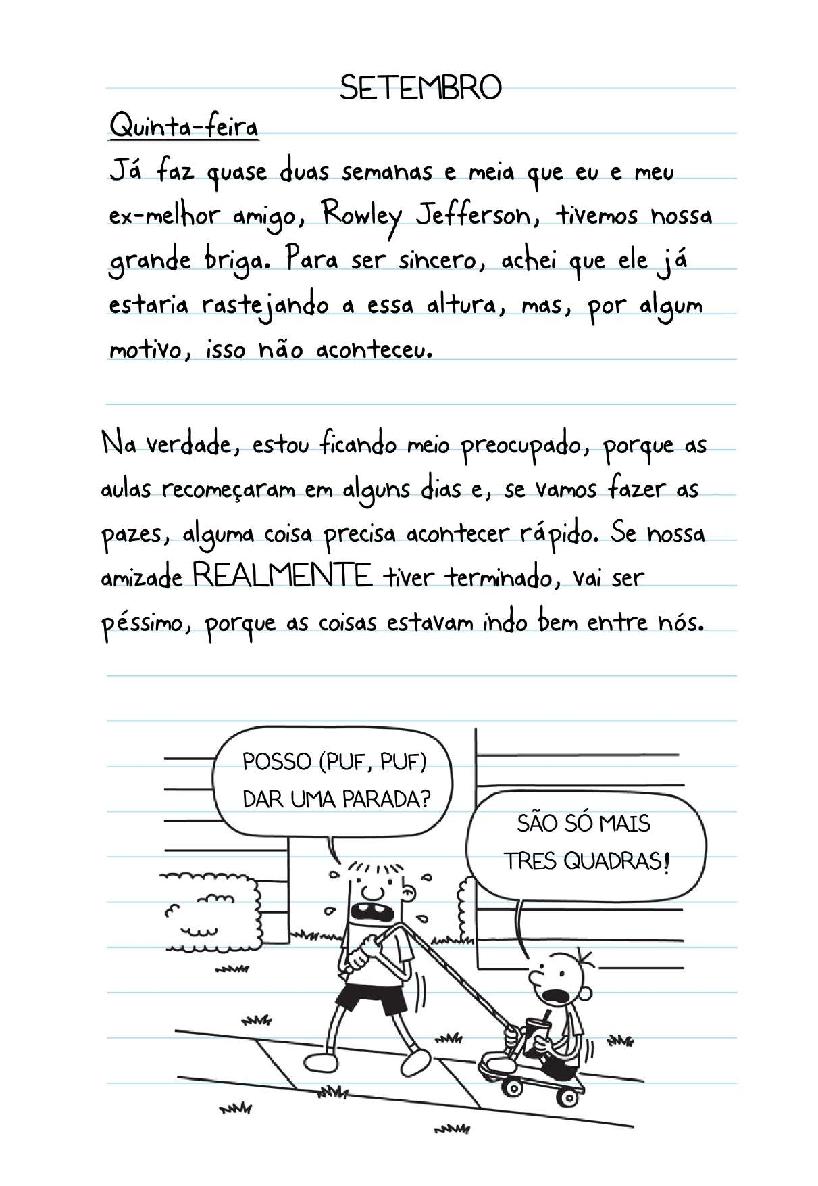 SETEMBRO
Quinta-feira
Já faz quase duas semanas e meia que eu e meu
ex-melhor amigo, Rowley Jefferson, tivemos nossa
grande briga. Para ser sincero, achei que ele já
estaria rastejando a essa altura, mas, por algum
motivo, isso não aconteceu.
Na verdade, estou ficando meio preocupado, porque as
aulas recomeçaram em alguns dias e, se vamos fazer as
pazes, alguma coisa precisa acontecer rápido. Se nossa
amizade REALMENTE tiver terminado, vai ser
péssimo, porque as coisas estavam indo bem entre nós.
POSSO (PUF, PUF)
DAR UMA PARADA?
SÃO SÓ MAIS
TRES QUADRAS!